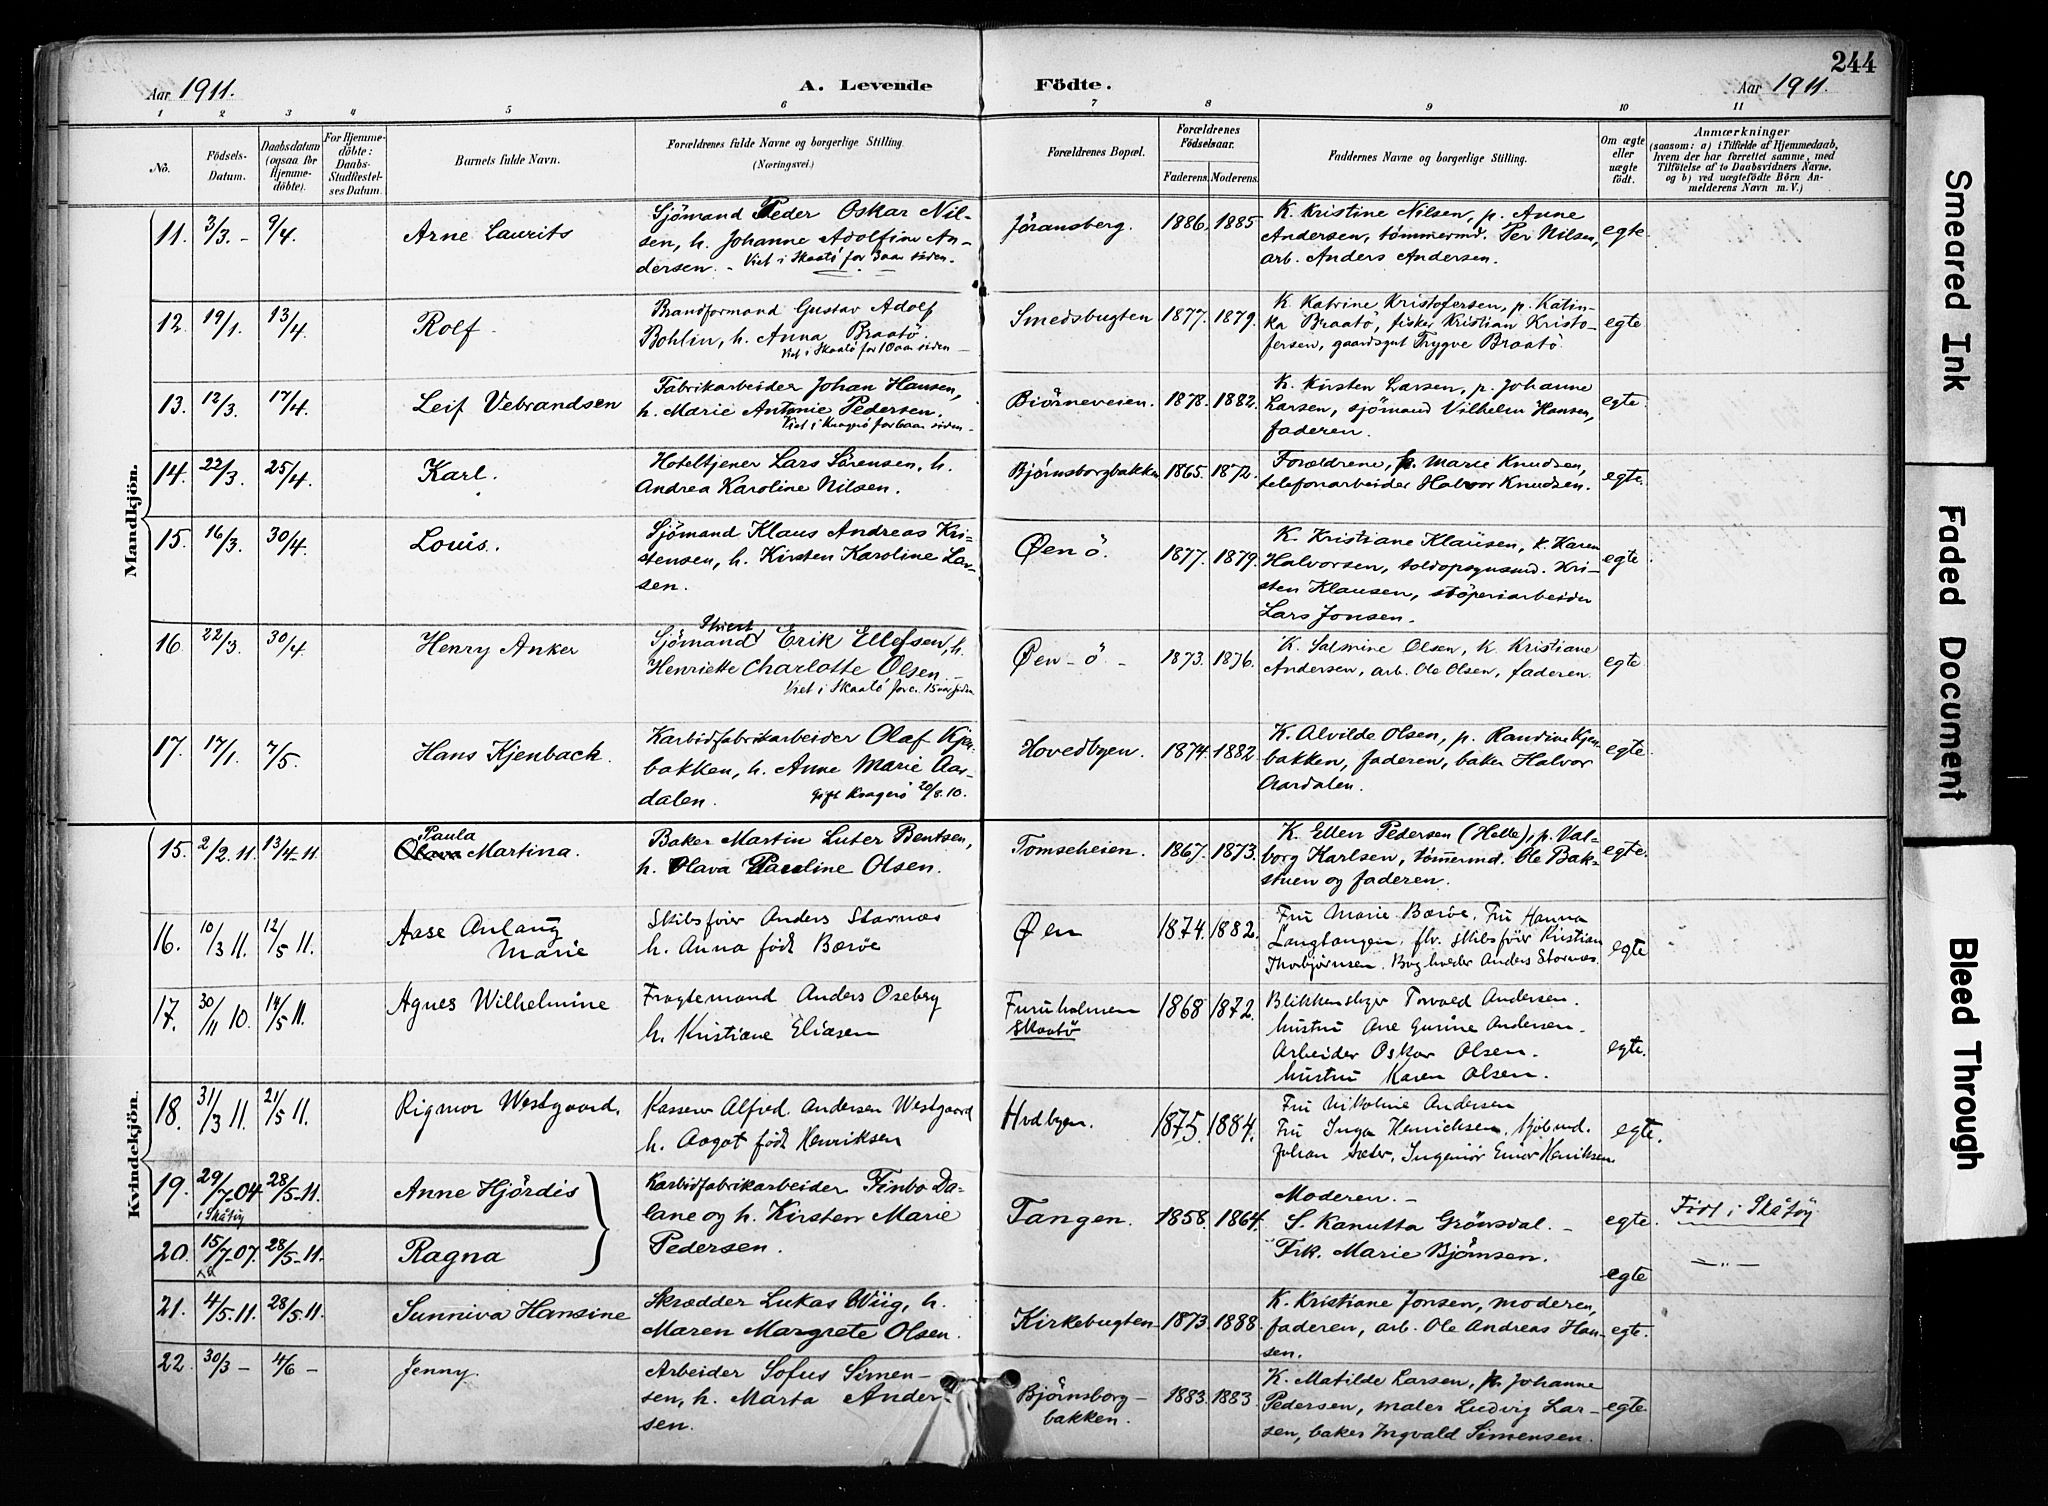 244
Aar 1911. A. Levende Födte. Aar 1911.
1 2 3 4 5 6 7 8 9 10 11
No. Födsels-Datum. Daabsdatum (ogsaa for Hjemmedöbte). For Hjemmedöbte: Daabs-Stadfæstelses Datum. Barnets fulde Navn. Forældrenes fulde Navne og borgerlige Stilling. (Næringsvei.) Forældrenes Bopæl. Forældrenes Födselsaar. Faderens. Moderens. Faddernes Navne og borgerlige Stilling. Om ægte eller uægte födt. Anmærkninger
(saasom: a) i Tilfælde af Hjemmedaab, hvem der har forrettet samme, med Tilföielse af to Daabsvidners Navne, og b) ved uægtefödte Börn Anmelderens Navn m. V.)
Mandkjön.
11. 3/3. - 9/4. Arne Laurits
Sjömand Peder Oskar Nil-
sen, h. Johanne Adolfine An-
dersen. - Viet i Skaatö for 3 aar siden.
Jöransberg. 1886. 1885
K. Kristine Nilsen, p. Anne
Andersen, tömmermd. Per Nilsen,
arb. Anders Andersen.
egte.
12. 19/1. 13/4. Rolf.
Brandformand Gustav Adolf
Bohlin, h. Anna Braatö.
Viet i Skaatö for 10 aar siden
Smedsbugten 1877. 1879.
K. Katrine Kristofersen, p. Katin-
ka Braatö, fisker Kristian Kristo-
fersen, gaardsgut Trygve Braatö.
egte
13. 12/3. 17/4. Leif Vebrandsen
Fabrikarbeider Johan Hansen,
h. Marie Antonie Pedersen.
Viet i Kragerö for 6 aar siden.
Biörneveien. 1878. 1882.
K. Kirsten Larsen, p. Johanne
Larsen, sjömand Vilhelm Hansen,
faderen.
egte.
14. 22/3. 25/4. Karl.
Hoteltjener Lars Sörensen, h.
Andrea Karoline Nilsen.
Bjørnsborgbakken 1865. 1872.
Forældrene, p. Marie Knudsen,
telefonarbeider Halvor Knudsen.
egte.
15. 16/3. 30/4. Louis.
Sjömand Klaus Andreas Kri-
stensen, h. Kirsten Karoline Lar-
sen.
Øen ö. 1877. 1879.
K. Kristiane Klausen, k. Karen
Halvorsen, toldopsynsmd. Kri-
sten Klausen, stöperiarbeider
Lars Jonsen.
egte
16. 22/3. 30/4. Henry Anker
Sjömand Erik Ellefsen, h.
Henriette Charlotte Olsen.
Viet i Skaatö for c. 15 aar siden
Øen - ö - 1873. 1876.
K. Salmine Olsen, k. Kristiane
Andersen, arb. Ole Olsen, faderen.
egte
17. 17/1. 7/5. Hans Kjenback.
Karbidfabrikarbeider Olaf Kjen-
bakken, h. Anne Marie Aar-
dalen. gift Kragerö 20/8.10.
Hovedbyen. 1874. 1882
K. Alvilde Olsen, p. Randine Kjen-
bakken, faderen, baker Halvor
Aardalen.
egte.
Kvindekjön.
15. 2/2.11. 13/4-11. Paula
Olava Martina.
Baker Martin Luter Bentsen,
h. Olava Pauline Olsen.
Tomseheien. 1867. 1873.
K. Ellen Pedersen (Helle), p. Val-
borg Karlsen, tømermd. Ole Bak-
stuen og faderen.
egte.
16. 10/3 11. 12/5 11. Aase Anlaug
Marie
Skibsfører Anders Stornæs
h. Anna født Barøe
Øen 1874. 1882.
Fru Marie Barøe. Fru Hanna
Langtangen, fhv. skibsfører Kristian
Thorbjørnsen. Bogholder Anders Stornæs.
egte
17. 30/11 10. 14/5 11. Agnes Wilhelmine
Fragtemand Anders Oseberg
h. Kristiane Eliasen
Furuholmen
Skaatö 1868 1872.
Blikkenslager Torvald Andersen.
hustru Ane Gurine Andersen.
Arbeider Oskar Olsen.
hustru Karen Olsen.
egte.
18. 31/3 11. 21/5 11. Rigmor Westgaard.
Kasserer Alfred Andersen Westgaard
h. Aagot født Henriksen
Hvdbyen. 1875. 1884.
Fru Nikoline Andersen
Fru Inga Henriksen. Sjöbmd.
Johan Sæter, Ingeniør Einar Henriksen.
egte.
19. 29/7-04. i Skåtöy 28/5-11. Anne Hjördis
Karbidfabrikarbeider Finbo Da-
lane og h. Kirsten Marie
Pedersen.
Tangen. 1858. 1864.
Moderen. -
S. Kanutta Grönsdal. -
Frk. Marie Bjørnsen.
egte. Född i Skåtöy
20. 15/7-07. 28/5-11. Ragna
egte -"-
21. 4/5.11. 28/5.11. Sunniva Hansine
Skrædder Lukas Wiig, h.
Maren Margrete Olsen.
Kirkebugten 1873. 1888.
K. Kristiane Jonsen, moderen,
faderen, arb. Ole Andreas Han-
sen.
egte.
22. 30/3 - 4/6 - Jenny.
Arbeider Sofus Simen-
sen, h. Marta Ander-
sen.
Bjørnsborg-
bakken. 1883. 1883.
K. Matilde Larsen, p. Johanne
Pedersen, maler Ludvig Lar-
sen, baker Ingvald Simensen.
egte.
Smeared Ink
Faded Document
Bleed Through